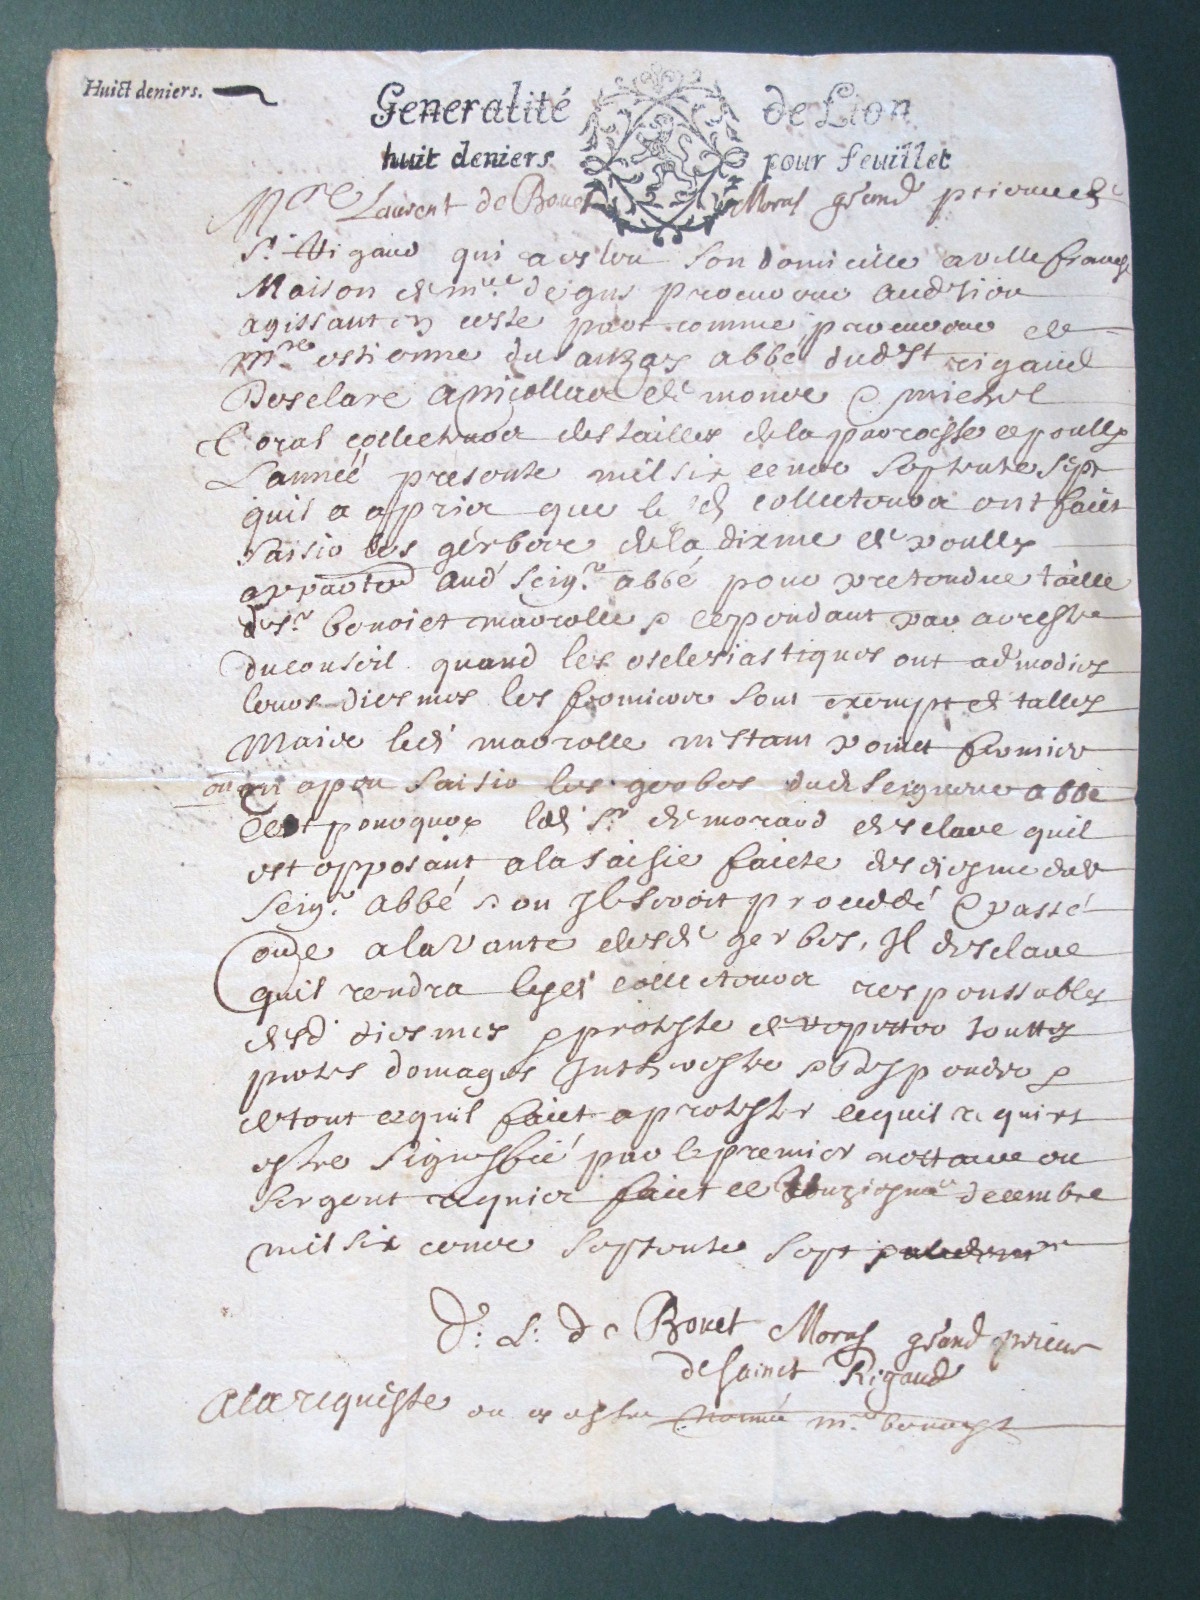 Huict deniers.
Generalité de Lion
huit deniers pour feuillet
Mre Laurent de Bouet Moras grand prieur de
St. Rigaud qui a eslu son domicille a villefranche
Maison de mre procureur audit lieu
agissant en ceste part comme procureur de
mre estienne du abbé dud St rigaud
Desclare a nicollas de monce & michel
Coras collecteurs des tailles de la parroisse de poulle
L'année presente mil six cens septente sept
quil a apris que lesd collecteurs ont faict
saisir les gerbes de la dixme de poulle
appart aud seigr abbé pour pretendue taille
du sr benoict marrolle & cependant par arreste
du conseil quand les eclesiastiques ont admodiés
leurs diesmes les fermiers sont exempt de talles
Mais led marrolle nestant point fermier
on na peu saisir les gerbes dud seigneur abbé
Cest pourquoy led sr de morand desclare quil
est opposant a la saisie faicte des diesme dud
seigr abbé & ou Il seroit proceddé & passé
oultre a la vante desd gerbes, Il desclare
quil rendra lesd collecteurs responssables
desd diesmes & proteste de repetter touttes
pertes domages Interestz & despandz &
de tout ce quil faict a protester ce quil requiert
estre signiffié par le premier nottaire ou
sergent requis faict ce decembre
mil six cens septente sept
D: L: de Bouet Moras grand prieur
de sainct Rigaud
A la requiste